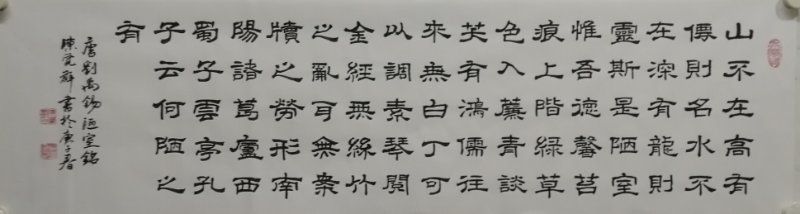 山不在高有
僊則名水不
在深有龍則
靈斯是陋室
惟吾德馨苔
痕上階綠草
色入簾青談
笑有鴻儒往
來無白丁可
以調素琴閱
金經無絲竹
之亂耳無案
牘之勞形南
陽諸葛廬西
蜀子雲亭孔
子云何陋之
有
唐劉禹錫陋室銘
陳 書於庚子春